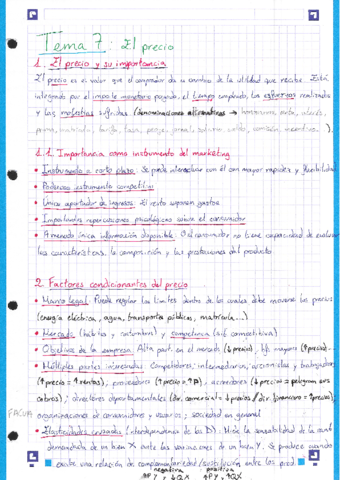 Tema 7: El precio
1. El precio y su importancia
El precio es el valor que el comprador da a cambio de la utilidad que recibe. Está
integrado por el importe monetario pagado, el tiempo empleado, los esfuerzos realizados
y las molestias sufridas (denominaciones alternativas → honorarios, cuota,
prima, matrícula, tarifa, tasa, peaje, salario, comisión, incentivo).
1.1. Importancia como instrumento del marketing
• Instrumento a corto plazo. Se puede interactuar con él con mayor rapidez y flexibilidad
• Poderoso instrumento competitivo
• Único aportador de ingresos. El resto suponen gastos
• Importantes repercusiones psicológicas sobre el consumidor
• A menudo única información disponible. O el consumidor no tiene capacidad de evaluar
las características, la composición y las prestaciones del producto
2. Factores condicionantes del precio
• Marco legal. Puede regular los límites dentro de los cuales debe moverse los precios
(energía eléctrica, agua, transportes públicos, matrícula...)
• Mercado (hábitos y costumbres) y competencia (sit. competitiva)
• Objetivos de la empresa. Alta part. en el mercado (↓ precio), bfº mayores (↑ precio)...
• Múltiples partes interesadas. Competidores; intermediarios; accionistas y trabajadores
(↑ precio = ↑ rentas), proveedores (↑ precio = ↑P), acreedores (↓ precio = peligran sus
cobros); directores departamentales (dir. comercial = ↓ precios // dir. financiero = ↑ precios);
FACUA
organizaciones de consumidores y usuarios; sociedad en general
• Elasticidades cruzadas (interdependencia de las D). Mide la sensibilidad de la cant.
demandada de un bien X ante las variaciones de un bien Y. Se produce cuando
existe una relación de complementariedad/sustitución entre los prod.
negativa positiva
↑PY ↓QX ↑PY ↑QX